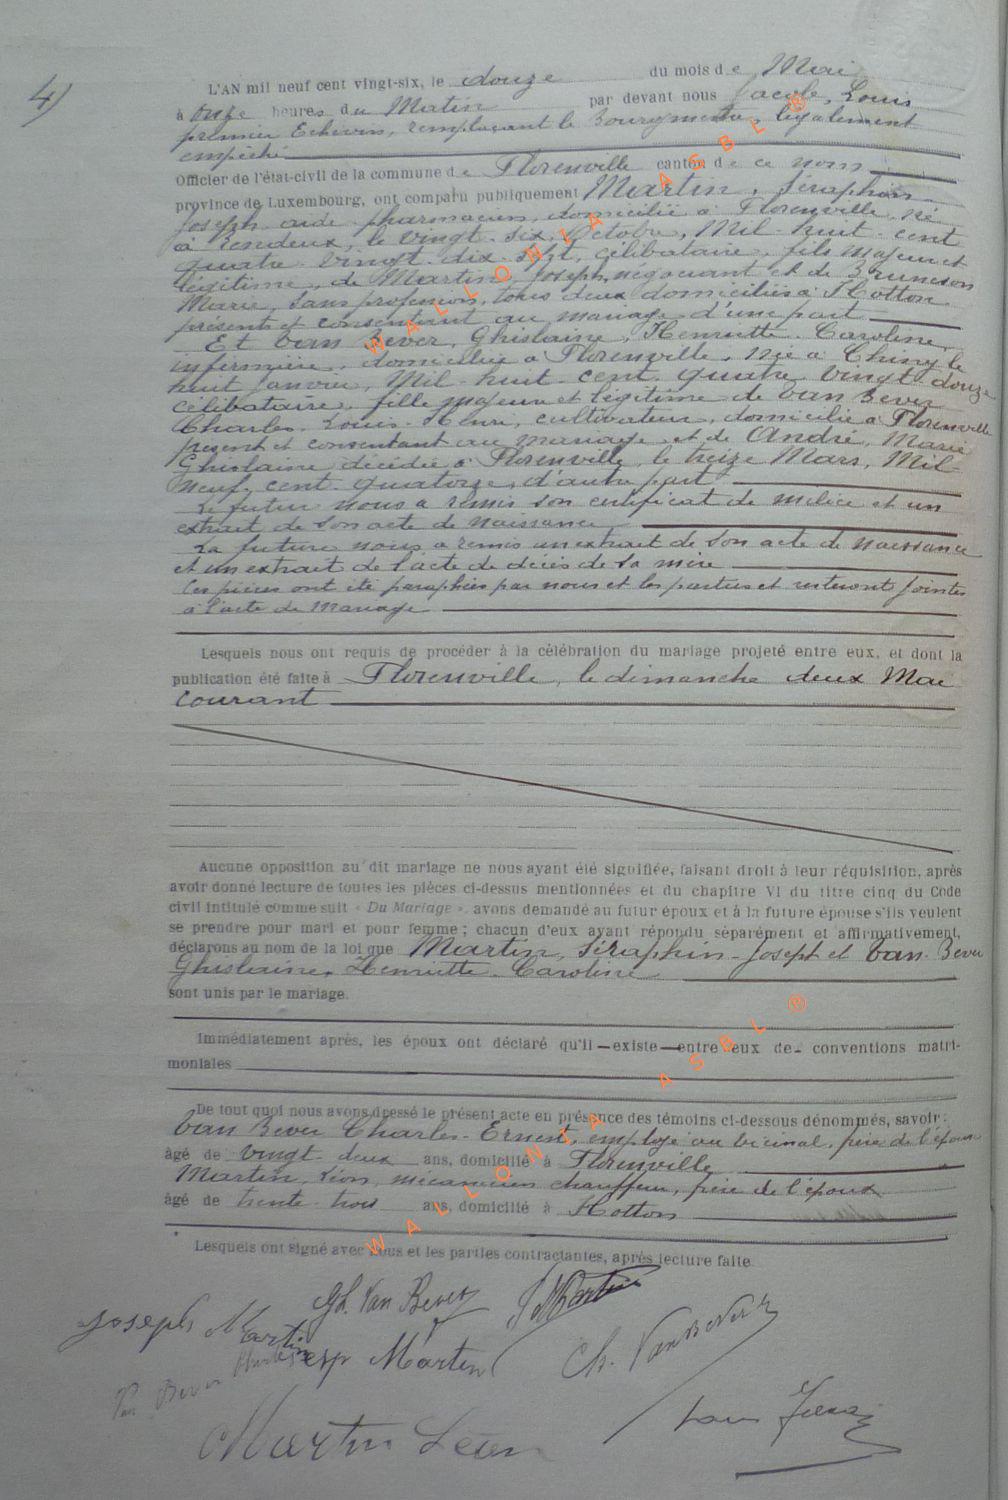 4)
L'AN mil neuf cent vingt-six, le douze du mois de Mai
à onze heures du Matin par devant nous Jacob, Louis
premier Echevin, remplaçant le Bourgmestre, légalement
empêché
Officier de l'état-civil de la commune de Florenville canton de ce nom
province de Luxembourg, ont comparu publiquement Martin, Séraphin
Joseph aide pharmacien, domicilié à Florenville, né
à Rendeux, le vingt-six Octobre, Mil-huit-cent
quatre-vingt-dix-sept, célibataire, fils majeur et
légitime, de Martin, Joseph, négociant et de
Marie, sans profession, tous deux domiciliés à Hotton
présents et consentant au mariage d'une part
Et Van Bever, Ghislaine, Henriette Caroline,
infirmière, domiciliée à Florenville, née à Chiny le
huit Janvier, Mil-huit-cent-quatre vingt-douze
célibataire, fille majeure et légitime de Van Bever
Charles-Louis-Henri, cultivateur, domicilié à Florenville
présent et consentant au mariage et de André, Marie
Ghislaine décédée à Florenville, le treize Mars, Mil-
neuf cent quatorze, d'autre part
Le futur nous a remis son certificat de milice et un
extrait de son acte de naissance
La future nous a remis un extrait de son acte de naissance
et un extrait de l'acte de décès de sa mère
les pièces ont été paraphées par nous et les parties et resteront jointes
à l'acte de mariage
Lesquels nous ont requis de procéder à la célébration du mariage projeté entre eux, et dont la
publication été faite à Florenville, le dimanche deux Mai
courant
Aucune opposition au dit mariage ne nous ayant été signifiée, faisant droit à leur réquisition, après
avoir donné lecture de toutes les pièces ci-dessus mentionnées et du chapitre VI du titre cinq du Code
civil intitulé comme suit « Du Mariage », avons demandé au futur époux et à la future épouse s'ils veulent
se prendre pour mari et pour femme ; chacun d'eux ayant répondu séparément et affirmativement,
déclarons au nom de la loi que Martin, Séraphin-Joseph et Van-Bever
Ghislaine, Henriette-Caroline
sont unis par le mariage.
Immédiatement après, les époux ont déclaré qu'il existe entre eux de conventions matri-
moniales
De tout quoi nous avons dressé le présent acte en présence des témoins ci-dessous dénommés, savoir :
Van Bever Charles-Ernest, employé au vicinal, frère de l'épouse
âgé de vingt-deux ans, domicilié à Florenville
Martin, Léon, mécanicien chauffeur, frère de l'époux
âgé de trente-trois ans, domicilié à Hotton
Lesquels ont signé avec nous et les parties contractantes, après lecture faite.
Joseph Martin Gh. Van Bever Martin
Van Bever Charles Martin Ch. Van Bever
Martin Léon Louis Jacob
WALLONIA ASBL ®
WALLONIA ASBL ®